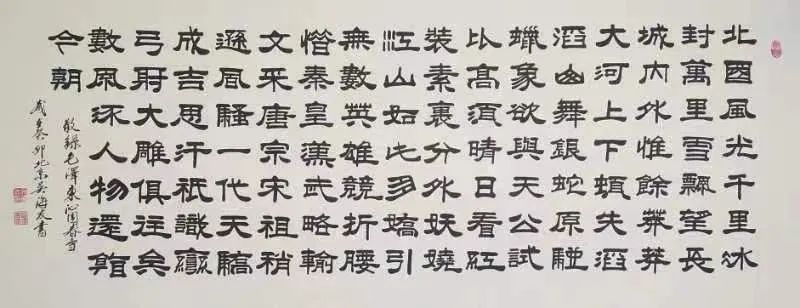 北國風光千里冰
封萬里雪飄望長
城内外惟餘莽莽
大河上下頓失滔
滔山舞銀蛇原馳
蠟象欲與天公試
比高湏晴日看紅
裝素裹分外妖嬈
江山如此多嬌引
無數英雄競折腰
惜秦皇漢武略輸
文采唐宗宋祖稍
遜風騷一代天驕
成吉思汗祇識彎
弓射大雕俱往矣
數風流人物還看
今朝
敬錄毛澤東沁園春雪
歲在癸卯北京吴海友書